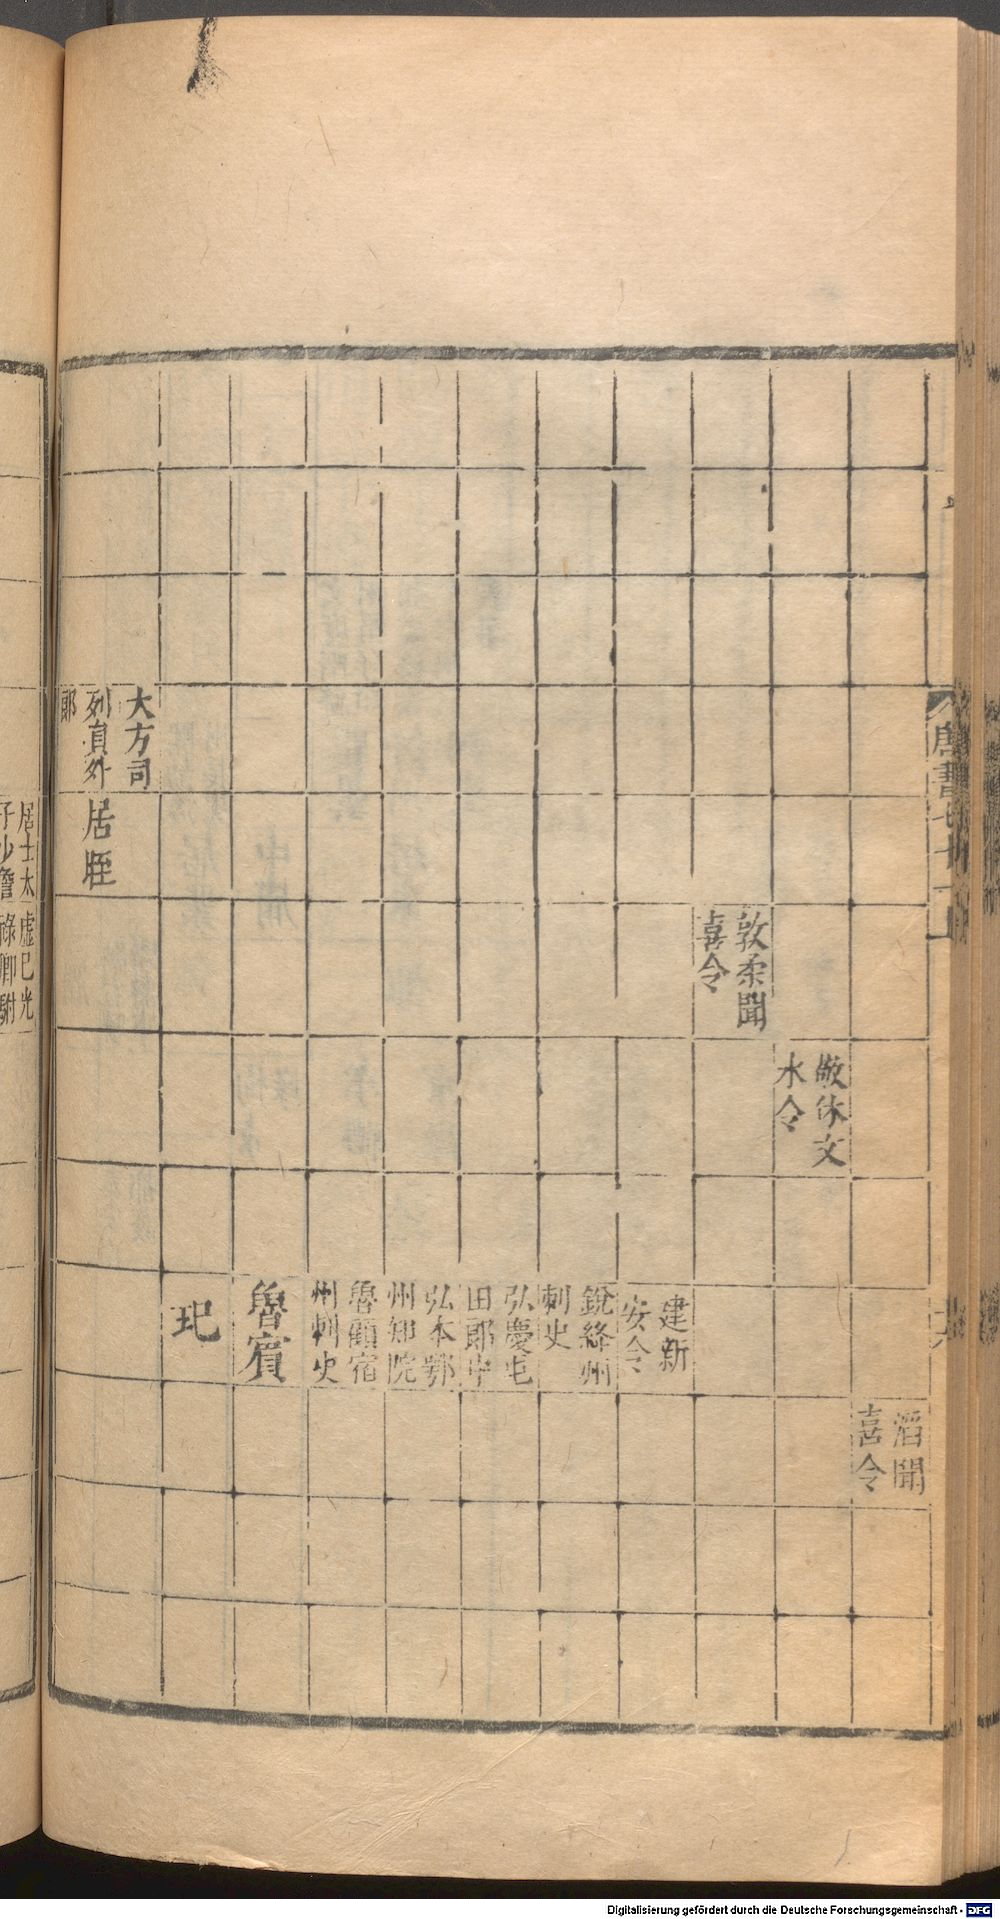 唐書七十一上
滔聞
喜令
敬休文
水令
敦柔聞
喜令
建新
安令
銳絳州
刺史
弘慶屯
田郎中
弘本鄂
州知院
魯顧宿
州刺史
魯賓
玘
大方司
列員外
郎
居
居士太
子少詹
虛己光
祿卿駙
Digitalisierung gefördert durch die Deutsche Forschungsgemeinschaft - DFG